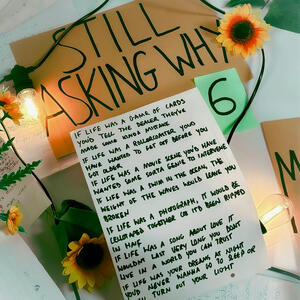 STILL
ASKING WHY
6
IF LIFE WAS A GAME OF CARDS
YOU'D TELL THE DEALER THEY'VE
MADE SOME KIND MISTAKE
IF LIFE WAS A ROLLERCOASTER YOU'D
HAVE WANTED TO GET OFF BEFORE YOU
GOT OLDER
IF LIFE WAS A MOVIE SCENE YOU'D HAVE
WANTED SOME SORTA GENIE TO INTERVENE
IF LIFE WAS A SWIM IN THE OCEAN THE
WEIGHT OF THE WAVES WOULD LEAVE YOU
BROKEN
IF LIFE WAS A PHOTOGRAPH, IT WOULD BE
CELLOTAPED TOGETHER CO IT'S BEEN RIPPED
IN HALF
IF LIFE WAS A SONG ABOUT LOVE IT
WOULDN'T LAST VERY LONG YOU DON'T
LIVE IN A WORLD YOU CAN TRUST
IF LIFE WAS YOUR DREAMS AT NIGHT
YOU'D NEVER WANNA GO TO SLEEP OR
TURN OUT YOUR LIGHT